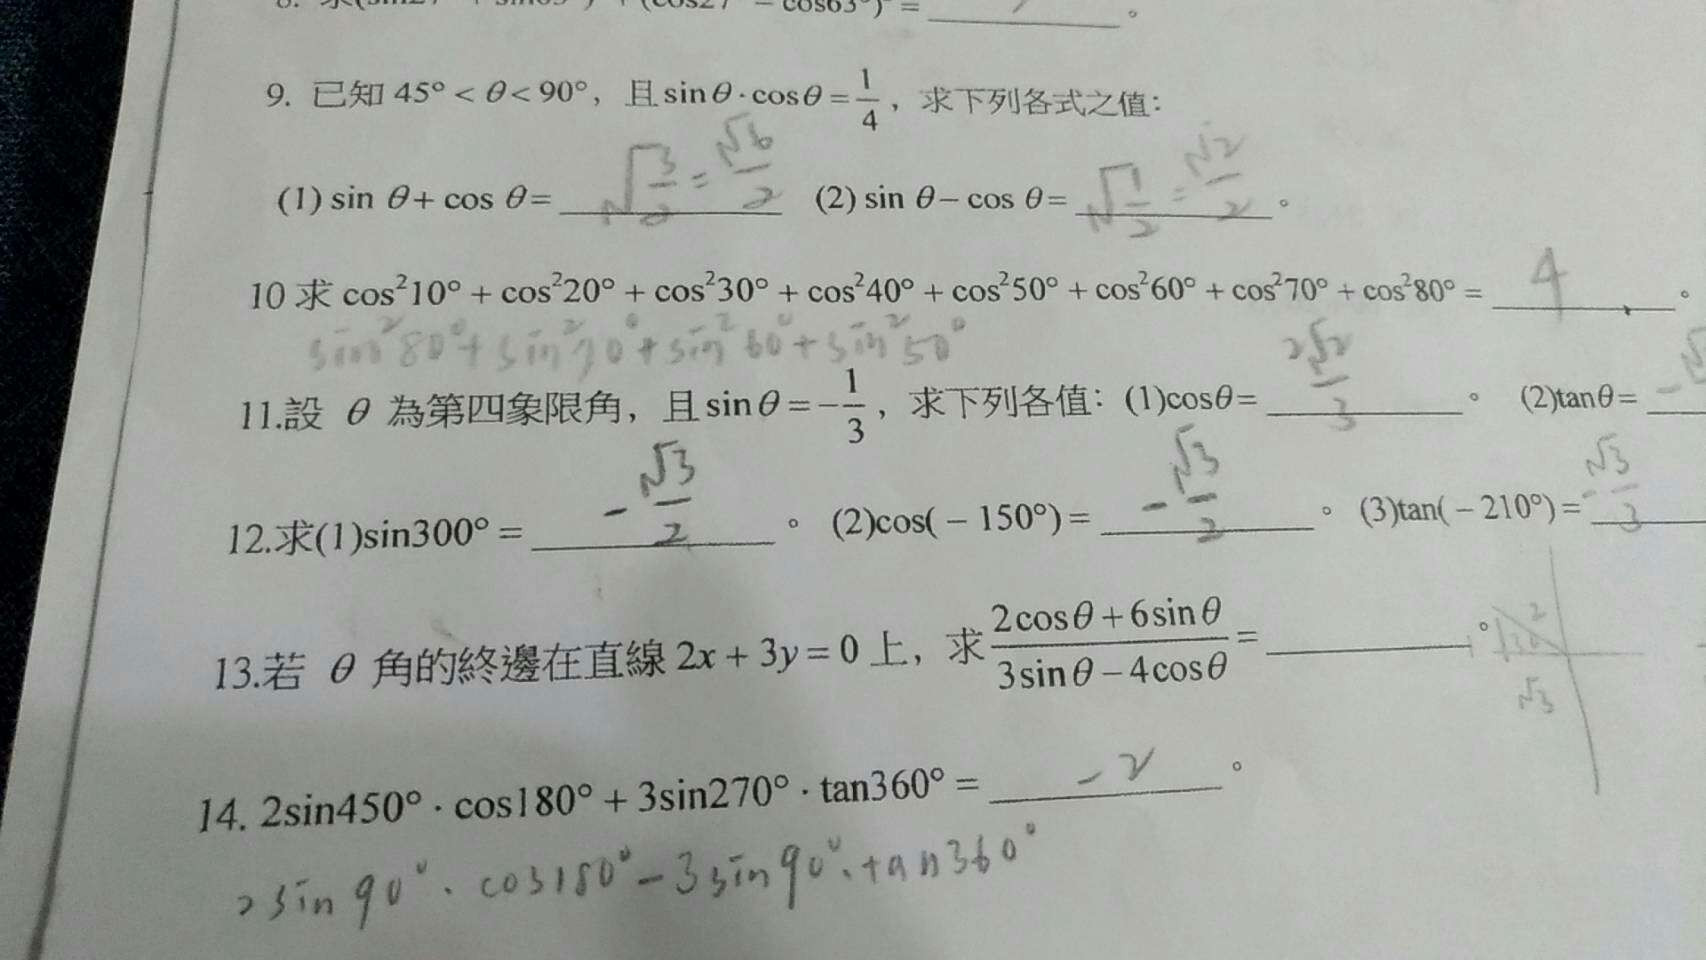 9. 已知 45° < θ < 90°，且 sinθ·cosθ = 1/4，求下列各式之值：
(1) sin θ + cos θ = √(3/2) = √6/2 (2) sin θ – cos θ = √(1/2) = √2/2 。
10 求 cos²10° + cos²20° + cos²30° + cos²40° + cos²50° + cos²60° + cos²70° + cos²80° = 4 。
sin²80° + sin²70° + sin²60° + sin²50°
11.設 θ 為第四象限角，且 sinθ = –1/3，求下列各值：(1)cosθ= 2√2/3 。 (2)tanθ= –
12.求(1)sin300° = –√3/2 。 (2)cos( – 150°) = –√3/2 。 (3)tan( – 210°) = –√3/3
13.若 θ 角的終邊在直線 2x + 3y = 0 上，求 (2cosθ + 6sinθ)/(3sinθ – 4cosθ) = 。
2
30
√3
14. 2sin450° · cos180° + 3sin270° · tan360° = –2 。
2sin90° · cos180° – 3sin90° · tan360°